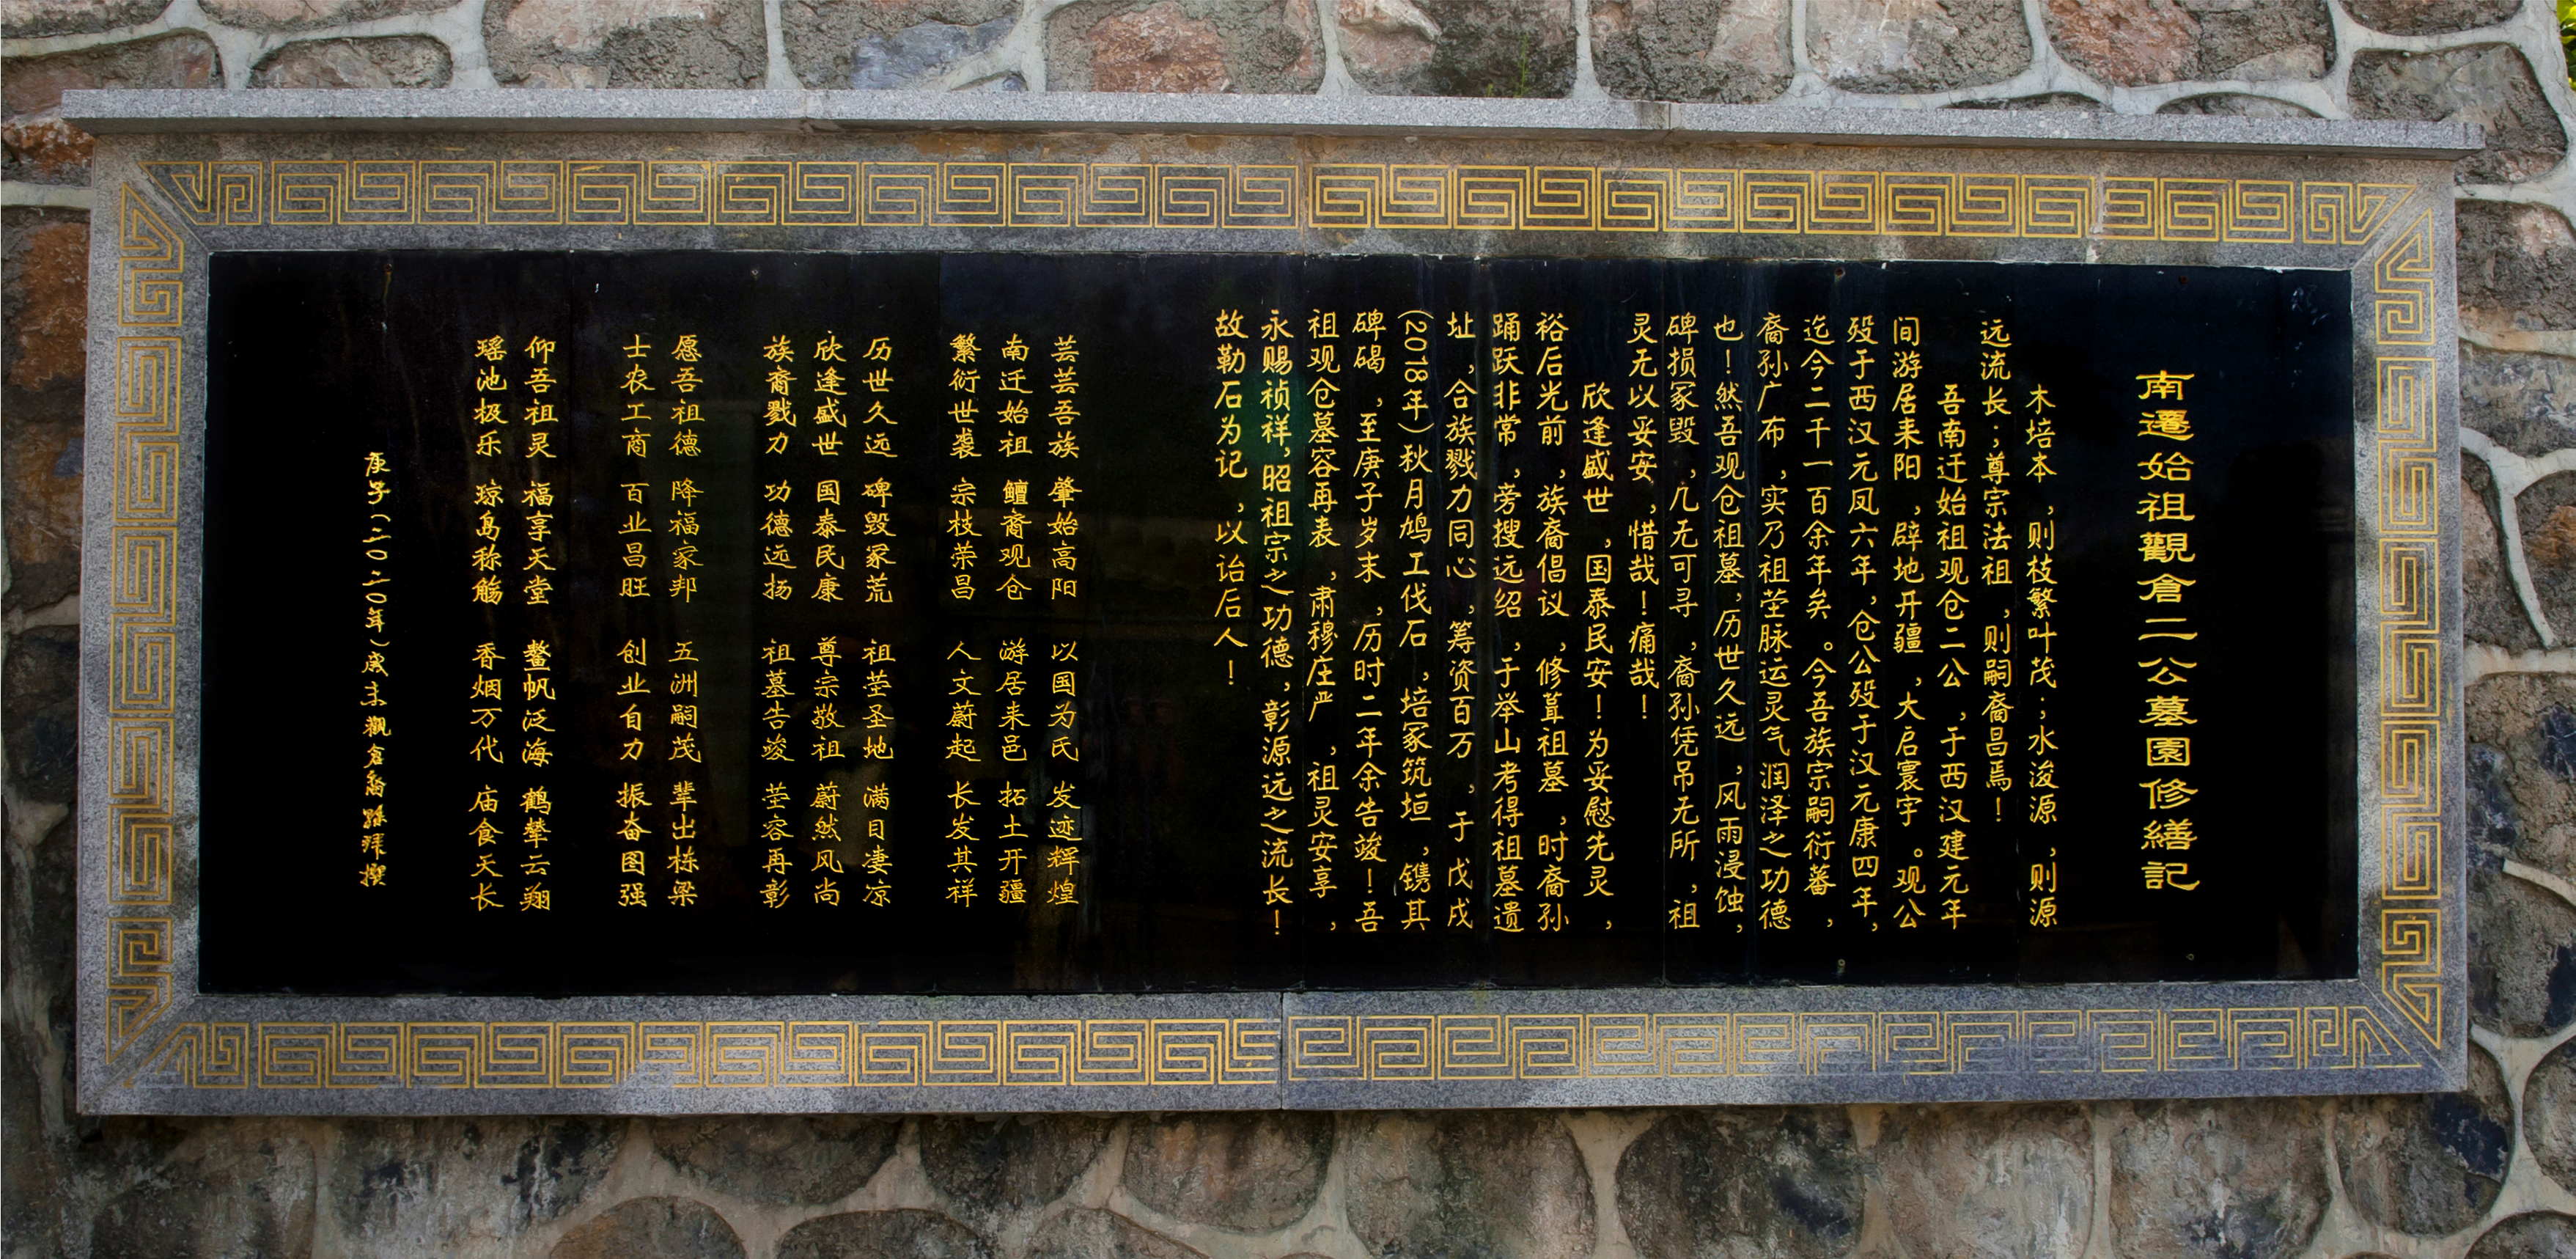 南遷始祖觀倉二公墓園修繕記
木培本，则枝繁叶茂；水浚源，则源
远流长；尊宗法祖，则嗣裔昌焉！
吾南迁始祖观仓二公，于西汉建元年
间游居耒阳，辟地开疆，大启寰宇。观公
殁于西汉元凤六年，仓公殁于汉元康四年，
迄今二千一百余年矣。今吾族宗嗣衍蕃，
裔孙广布，实乃祖茔脉运灵气润泽之功德
也！然吾观仓祖墓，历世久远，风雨浸蚀，
碑损冢毁，几无可寻，裔孙凭吊无所，祖
灵无以妥安，惜哉！痛哉！
欣逢盛世，国泰民安！为妥慰先灵，
裕后光前，族裔倡议，修葺祖墓，时裔孙
踊跃非常，旁搜远绍，于举山考得祖墓遗
址，合族戮力同心，筹资百万，于戊戌
(2018年)秋月鸠工伐石，培冢筑垣，镌其
碑碣，至庚子岁末，历时二年余告竣！吾
祖观仓墓容再表，肃穆庄严，祖灵安享，
永赐祯祥，昭祖宗之功德，彰源远之流长！
故勒石为记，以诒后人！
芸芸吾族 肇始高阳 以国为氏 发迹辉煌
南迁始祖 鳣裔观仓 游居耒邑 拓土开疆
繁衍世裘 宗枝荣昌 人文蔚起 长发其祥
历世久远 碑毁冢荒 祖茔圣地 满目凄凉
欣逢盛世 国泰民康 尊宗敬祖 蔚然风尚
族裔戮力 功德远扬 祖墓告竣 茔容再彰
愿吾祖德 降福家邦 五洲嗣茂 辈出栋梁
士农工商 百业昌旺 创业自力 振奋图强
仰吾祖灵 福享天堂 鳌帆泛海 鹤辇云翔
瑶池极乐 琼岛称觞 香烟万代 庙食天长
庚子(二〇二〇年)歲末觀倉裔孫拜撰